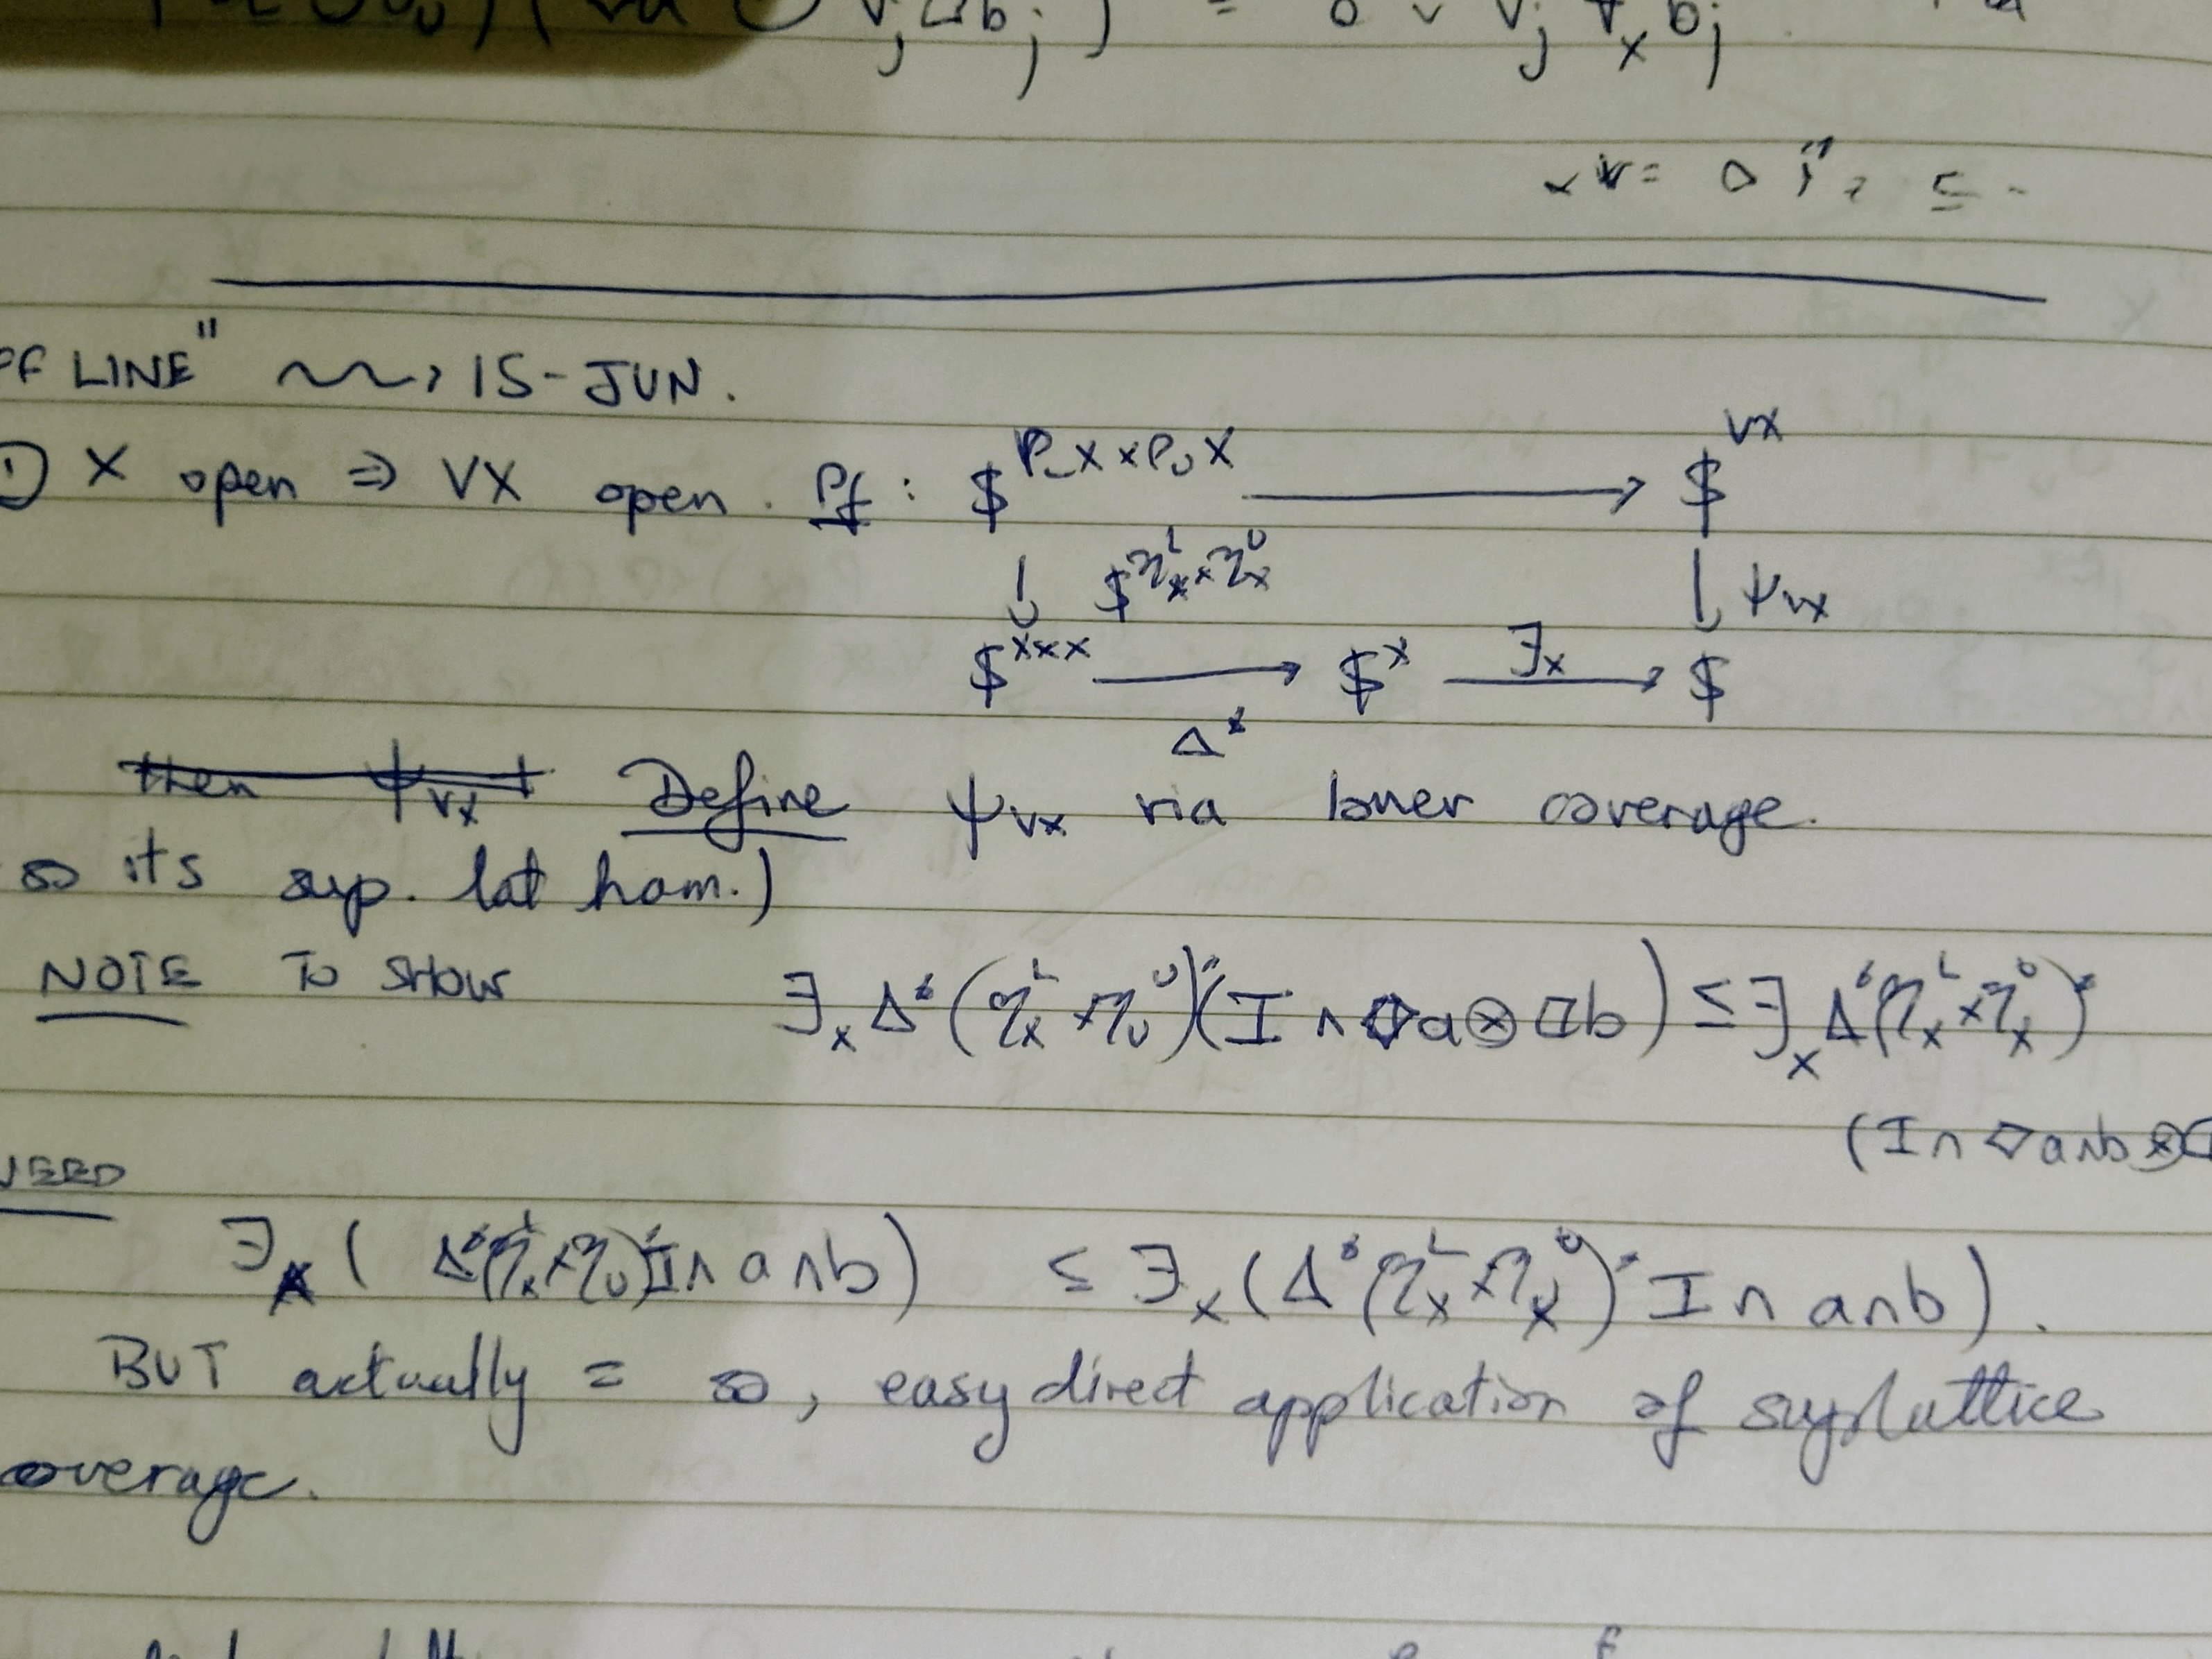 FF LINE" ⇝ 15-JUN.
① X open ⇒ VX open. Pf: $^{P_L X × P_U X} ⟶ $^{VX}
↓ $^{η^L_X × η^U_X} ↓ ψ_{VX}
$^{X×X} ⟶ $^X ⟶ $
Δ^* ∃_X
Define ψ_{VX} via lower coverage.
so its sup. lat hom.)
NOTE To show ∃_X Δ^*(η^L_X × η^U)^*(I ∧ ◇a ⊗ □b) ≤ ∃_X Δ^*(η^L_X × η^U_X)^*
(I ∧ ◇a∧b ⊗
NEED
∃_X ( Δ^*(η^L_X × η^U)^* I ∧ a ∧ b) ≤ ∃_X (Δ^*(η^L_X × η^U_X)^* I ∧ a∧b).
BUT actually = so, easy direct application of suplattice
coverage.